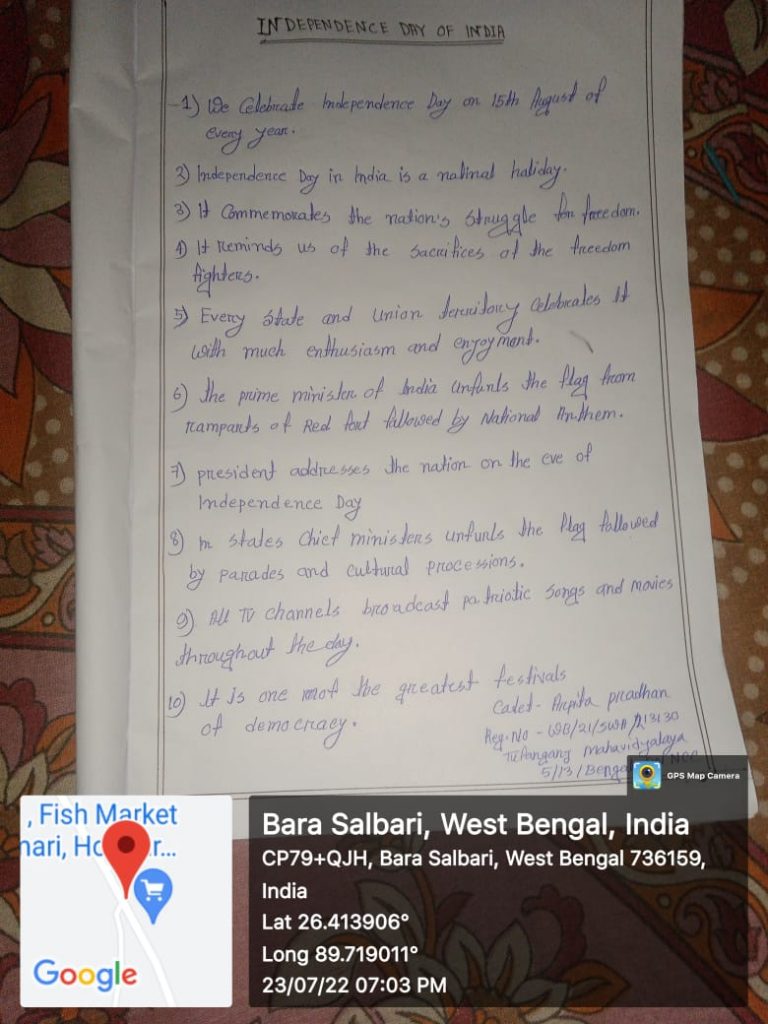 INDEPENDENCE DAY OF INDIA
1) We Celebrate Independence Day on 15th August of
every year.
2) Independence Day in India is a natinal haliday.
3) It Commemorates the nation's struggle for freedom.
4) It reminds us of the sacrifices of the freedom
fighters.
5) Every state and union territory celebrates It
with much enthusiasm and enjoyment.
6) the prime minister of India unfurls the flag from
ramparts of Red fort followed by National Anthem.
7) president addresses the nation on the eve of
Independence Day
8) In states Chief ministers unfurls the flag followed
by parades and cultural processions.
9) All TV channels broadcast patriotic songs and movies
throughout the day.
10) It is one of the greatest festivals
of democracy.
Cadet- Arpita pradhan
Reg. No - WB/21/SWA/213130
Tufanganj Mahavidyalaya
5/13/Benga NCC
GPS Map Camera
, Fish Market
nari, Ho r...
Google
Bara Salbari, West Bengal, India
CP79+QJH, Bara Salbari, West Bengal 736159,
India
Lat 26.413906°
Long 89.719011°
23/07/22 07:03 PM